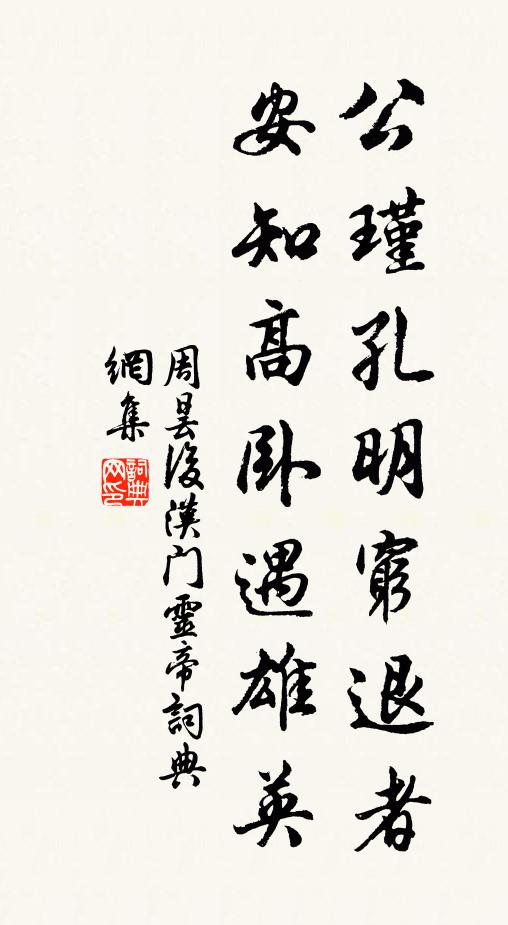 公瑾孔明窮退者
安知高臥遇雄英
周曇後漢門靈帝詞典
網集
詞典網印